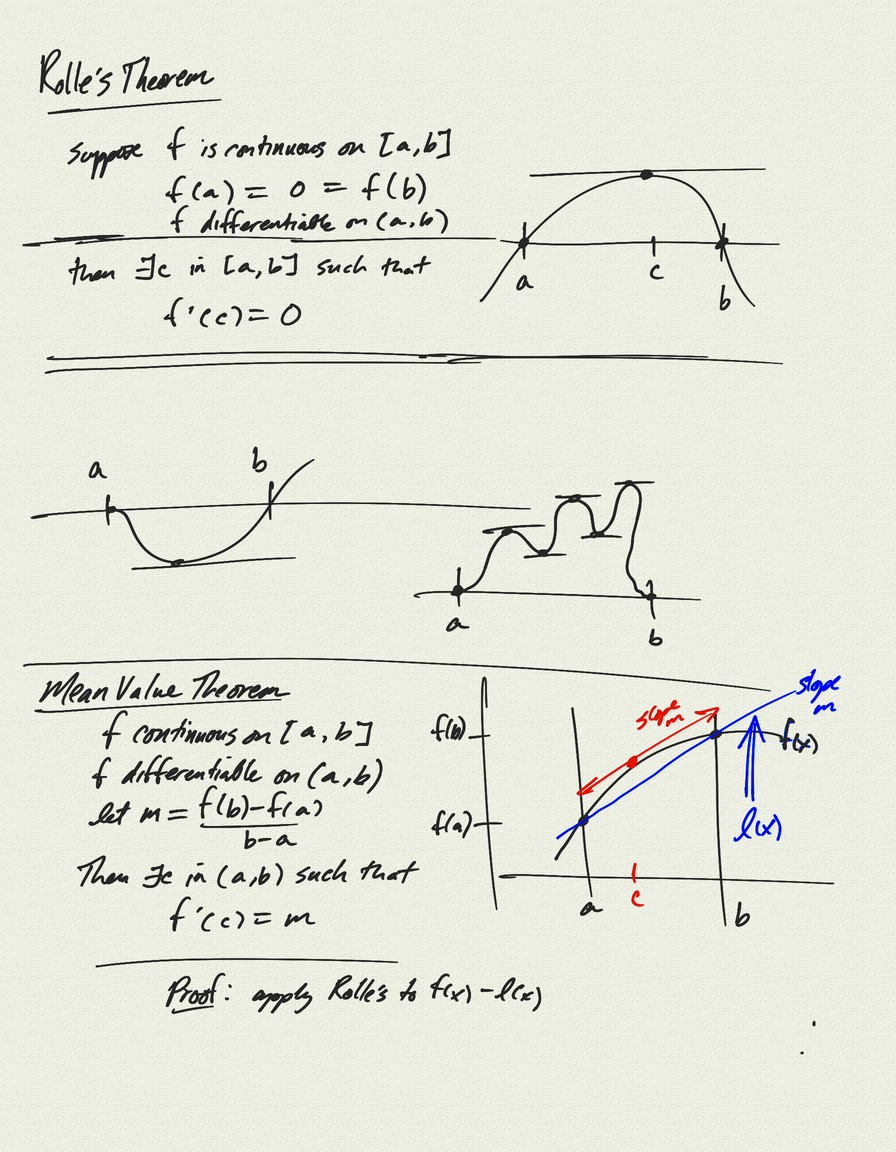 Rolle's Theorem
suppose f is continuous on [a,b]
f(a) = 0 = f(b)
f differentiable on (a,b)
then ∃c in [a,b] such that
f'(c) = 0
a
c
b
a
b
a
b
Mean Value Theorem
f continuous on [a,b]
f differentiable on (a,b)
let m = f(b)-f(a)
b-a
Then ∃c in (a,b) such that
f'(c) = m
f(b)
f(a)
slope
m
slope
m
f(x)
l(x)
a
c
b
Proof: apply Rolle's to f(x) - l(x)